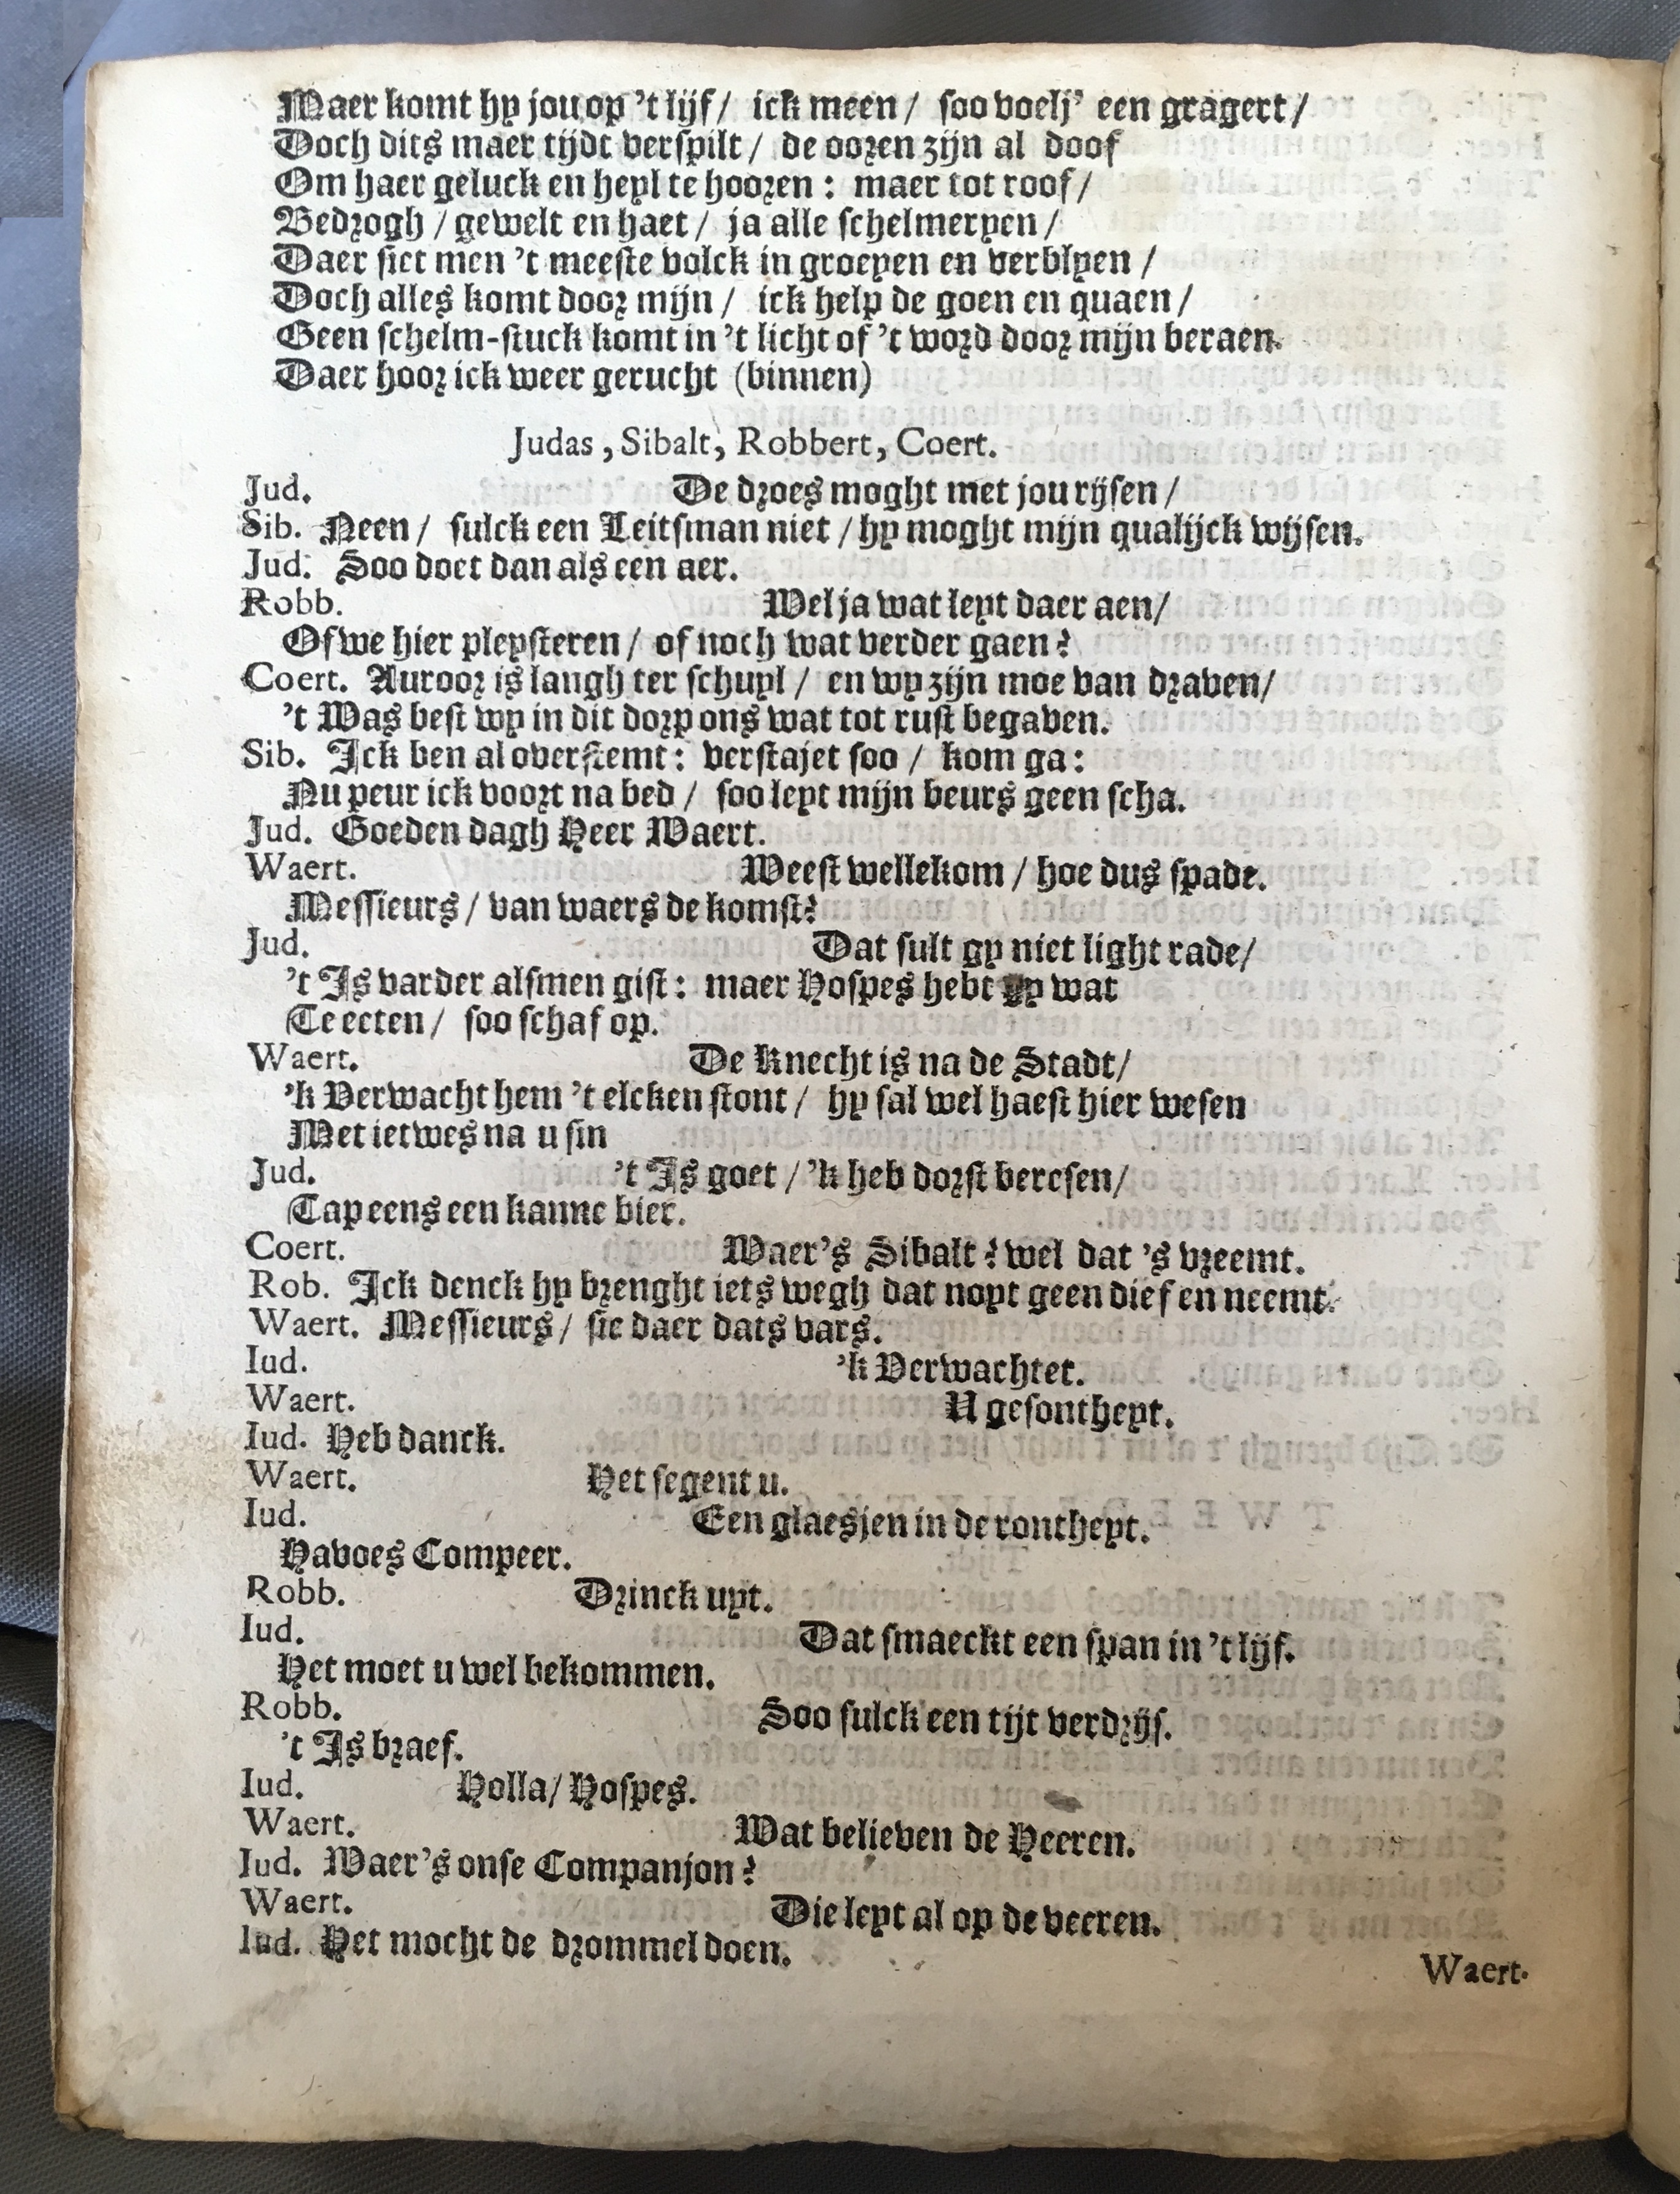 Maer komt hy jou op 't lijf / ick meen / soo voelj' een gragert /
Doch dits maer tijdt verspilt / de ooren zijn al doof
Om haer geluck en heyl te hooren : maer tot roof /
Bedrogh / gewelt en haet / ja alle schelmeryen /
Daer siet men 't meeste volck in groeyen en verblyen /
Doch alles komt door mijn / ick help de goen en quaen /
Geen schelm-stuck komt in 't licht of 't word door mijn beraen.
Daer hoor ick weer gerucht (binnen)
Judas, Sibalt, Robbert, Coert.
Jud. De droes moght met jou rijsen /
Sib. Neen / sulck een Leitsman niet / hy moght mijn qualijck wijsen.
Jud. Soo doet dan als een aer.
Robb. Wel ja wat leyt daer aen /
Of we hier pleysteren / of noch wat verder gaen?
Coert. Auroor is langh ter schuyl / en wy zijn moe van draven /
't Was best wy in dit dorp ons wat tot rust begaven.
Sib. Ick ben al overstemt : verstajet soo / kom ga :
Nu peur ick voort na bed / soo leyt mijn beurs geen scha.
Jud. Goeden dagh Heer Waert.
Waert. Weest wellekom / hoe dus spade.
Messieurs / van waers de komst?
Jud. Dat sult gy niet light rade /
't Is varder alsmen gist : maer Hospes hebt gy wat
Te eeten / soo schaf op.
Waert. De Knecht is na de Stadt /
'k Verwacht hem 't elcken stont / hy sal wel haest hier wesen
Met ietwes na u sin
Jud. 't Is goet / 'k heb dorst veresen /
Tap eens een kanne bier.
Coert. Waer's Sibalt? wel dat 's vreemt.
Rob. Ick denck hy brenght iets wegh dat noyt geen dief en neemt.
Waert. Messieurs / sie daer dats vars.
Iud. 'k Verwachtet.
Waert. U gesontheyt.
Iud. Heb danck.
Waert. Het segent u.
Iud. Een glaesjen in de rontheyt.
Havoes Compeer.
Robb. Drinck uyt.
Iud. Dat smaeckt een span in 't lijf.
Het moet u wel bekommen.
Robb. Soo sulck een tijt verdrijf.
't Is braef.
Iud. Holla / Hospes.
Waert. Wat believen de Heeren.
Iud. Waer's onse Companjon?
Waert. Die leyt al op de veeren.
Iud. Het mocht de drommel doen.
Waert.